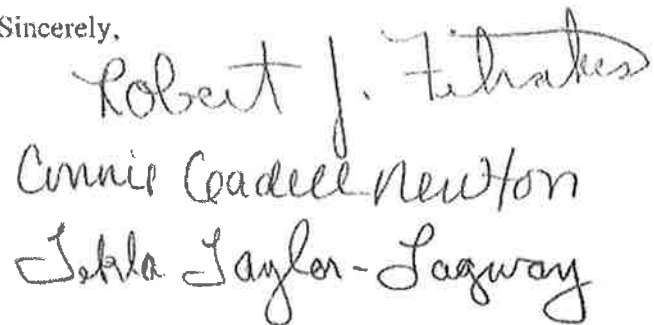 Sincerely,
Robert J. Fitrakis
Connie Gadell Newton
Tekla Taylor-Lagway